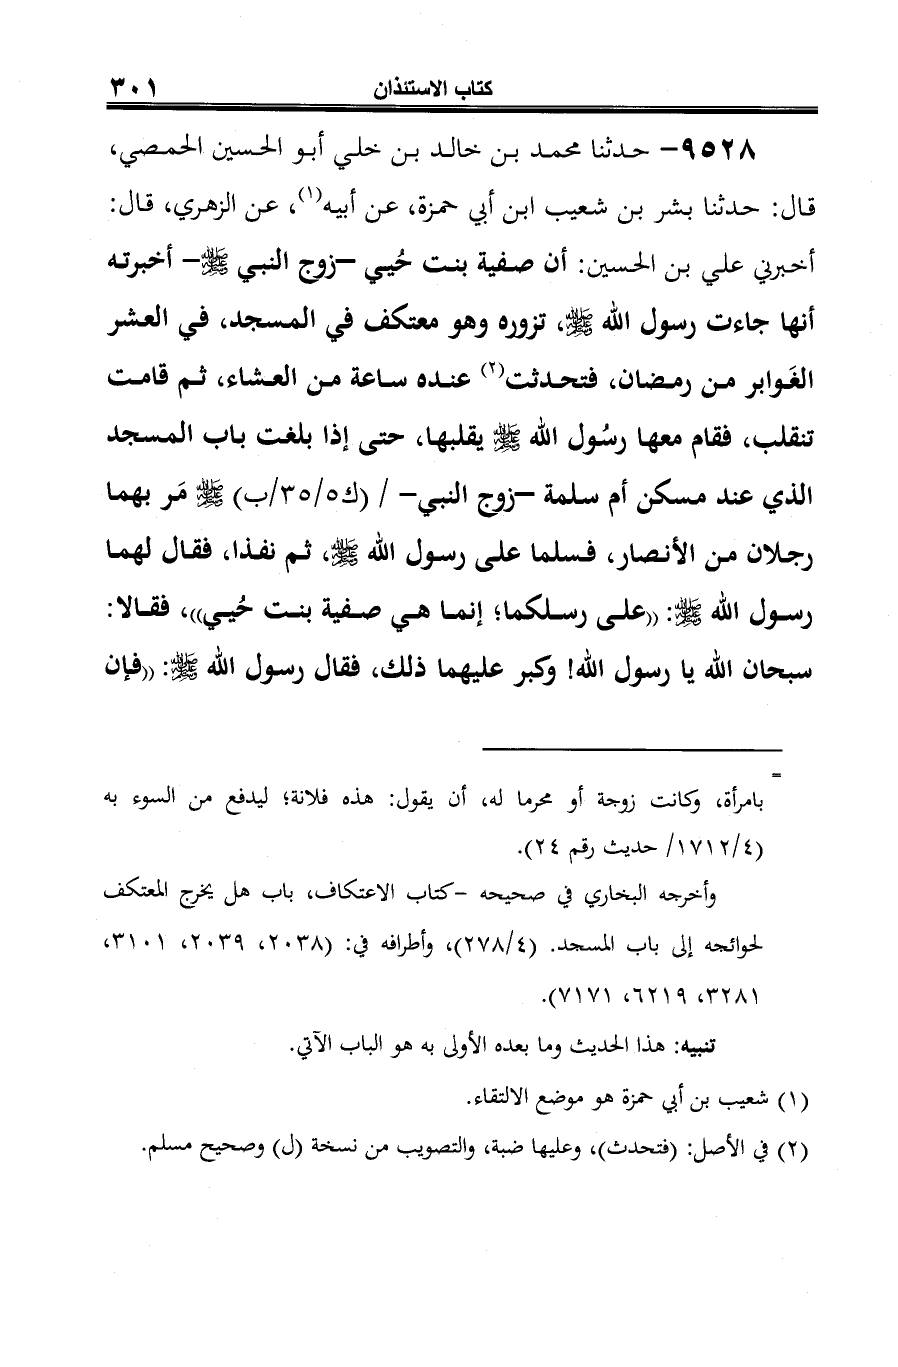 كتاب الاستئذان ٣٠١
٩٥٢٨- حدثنا محمد بن خالد بن خلي أبو الحسين الحمصي،
قال: حدثنا بشر بن شعيب ابن أبي حمزة، عن أبيه(١)، عن الزهري، قال:
أخبرني علي بن الحسين: أن صفية بنت حُيي -زوج النبي ﷺ- أخبرته
أنها جاءت رسول الله ﷺ، تزوره وهو معتكف في المسجد، في العشر
الغَوابر من رمضان، فتحدثت(٢) عنده ساعة من العشاء، ثم قامت
تنقلب، فقام معها رسُول الله ﷺ يقلبها، حتى إذا بلغت باب المسجد
الذي عند مسكن أم سلمة -زوج النبي- / (ك٣٥/٥/ب) ﷺ مَر بهما
رجلان من الأنصار، فسلما على رسول الله ﷺ، ثم نفذا، فقال لهما
رسول الله ﷺ: ((على رسلكما؛ إنما هي صفية بنت حُيي))، فقالا:
سبحان الله يا رسول الله! وكبر عليهما ذلك، فقال رسول الله ﷺ: ((فإن
=
بامرأة، وكانت زوجة أو محرما له، أن يقول: هذه فلانة؛ ليدفع من السوء به
(١٧١٢/٤/ حديث رقم ٢٤).
وأخرجه البخاري في صحيحه -كتاب الاعتكاف، باب هل يخرج المعتكف
لحوائجه إلى باب المسجد. (٢٧٨/٤)، وأطرافه في: (٢٠٣٨، ٢٠٣٩، ٣١٠١،
٣٢٨١، ٦٢١٩، ٧١٧١).
تنبيه: هذا الحديث وما بعده الأولى به هو الباب الآتي.
(١) شعيب بن أبي حمزة هو موضع الالتقاء.
(٢) في الأصل: (فتحدث)، وعليها ضبة، والتصويب من نسخة (ل) وصحيح مسلم.